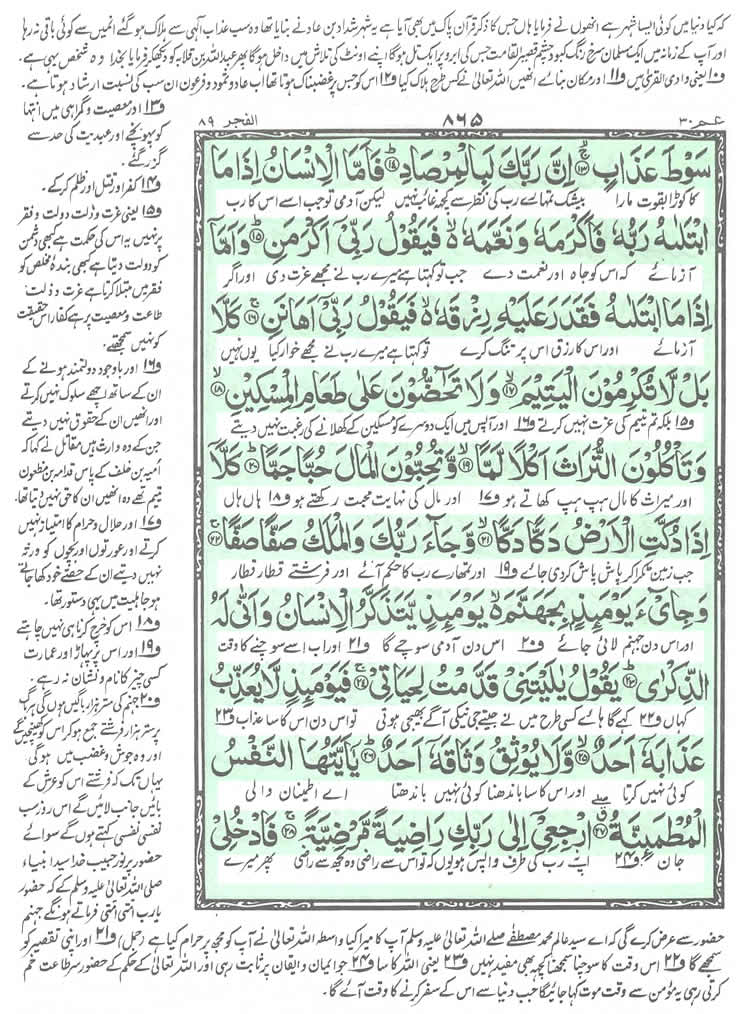 کہ کیا دنیا میں کوئی ایسا شہر ہے انھوں نے فرمایا ہاں جس کا ذکر قرآن پاک میں بھی آیا ہے یہ شہر شداد بن عاد نے بنایا تھا وہ سب عذاب الٰہی سے ہلاک ہو گئے انمیں سے کوئی باقی نہ رہا
اور آپ کے زمانہ میں ایک مسلمان سرخ رنگ کبود چشم قصیر القامت جس کی ابرو پر ایک تل ہوگا اپنے اونٹ کی تلاش میں داخل ہوگا پھر عبداللہ بن قلابہ کو دیکھکر فرمایا بخدا وہ شخص یہی ہے۔
ف۱۰ یعنی وادی القریٰ میں ف۱۱ اور مکان بنائے انھیں اللہ تعالیٰ نے کس طرح ہلاک کیا ف۱۲ اس کو جس پر غضبناک ہوتا تھا اب عاد و ثمود و فرعون ان سب کی نسبت ارشاد ہوتا ہے۔
عم ۳۰ ۸۶۵ الفجر ۸۹
سَوْطَ عَذَابٍ ﴿۱۳﴾ اِنَّ رَبَّكَ لَبِالْمِرْصَادِ ﴿۱۴﴾ فَاَمَّا الْاِنْسَانُ اِذَا مَا
کا کوڑا بقوت مارا بیشک تمہارے رب کی نظر سے کچھ غائب نہیں لیکن آدمی تو جب اسے اس کا رب
ابْتَلٰىهُ رَبُّهٗ فَاَكْرَمَهٗ وَنَعَّمَهٗ فَيَقُوْلُ رَبِّىْۤ اَكْرَمَنِ ﴿۱۵﴾ وَاَمَّاۤ
آزمائے کہ اس کو جاہ اور نعمت دے جب تو کہتا ہے میرے رب نے مجھے عزت دی اور اگر
اِذَا مَا ابْتَلٰىهُ فَقَدَرَ عَلَيْهِ رِزْقَهٗ فَيَقُوْلُ رَبِّىْۤ اَهَانَنِ ﴿۱۶﴾ كَلَّا
آزمائے اور اس کا رزق اس پر تنگ کرے تو کہتا ہے میرے رب نے مجھے خوار کیا یوں نہیں
بَلْ لَّا تُكْرِمُوْنَ الْيَتِيْمَ ﴿۱۷﴾ وَلَا تَحٰٓضُّوْنَ عَلٰى طَعَامِ الْمِسْكِيْنِ ﴿۱۸﴾
ف۱۵ بلکہ تم یتیم کی عزت نہیں کرتے ف۱۶ اور آپس میں ایک دوسرے کو مسکین کے کھلانے کی رغبت نہیں دیتے
وَتَاْكُلُوْنَ التُّرَاثَ اَكْلًا لَّمًّا ﴿۱۹﴾ وَّتُحِبُّوْنَ الْمَالَ حُبًّا جَمًّا ﴿۲۰﴾ كَلَّاۤ
اور میراث کا مال ہپ ہپ کھاتے ہو ف۱۷ اور مال کی نہایت محبت رکھتے ہو ف۱۸ ہاں ہاں
اِذَا دُكَّتِ الْاَرْضُ دَكًّا دَكًّا ﴿۲۱﴾ وَّجَآءَ رَبُّكَ وَالْمَلَكُ صَفًّا صَفًّا ﴿۲۲﴾
جب زمین ٹکرا کر پاش پاش کردی جائے ف۱۹ اور تمھارے رب کا حکم آئے اور فرشتے قطار قطار
وَجِاىْٓءَ يَوْمَئِذٍۭ بِجَهَنَّمَ يَوْمَئِذٍ يَّتَذَكَّرُ الْاِنْسَانُ وَاَنّٰى لَهُ
اور اس دن جہنم لائی جائے ف۲۰ اس دن آدمی سوچے گا ف۲۱ اور اب اسے سوچنے کا وقت
الذِّكْرٰى ﴿۲۳﴾ يَقُوْلُ يٰلَيْتَنِىْ قَدَّمْتُ لِحَيَاتِىْ ﴿۲۴﴾ فَيَوْمَئِذٍ لَّا يُعَذِّبُ
کہاں ف۲۲ کہے گا ہائے کسی طرح میں نے جیتے جی نیکی آگے بھیجی ہوتی تو اس دن اس کا سا عذاب ف۲۳
عَذَابَهٗۤ اَحَدٌ ﴿۲۵﴾ وَّلَا يُوْثِقُ وَثَاقَهٗۤ اَحَدٌ ﴿۲۶﴾ يٰۤاَيَّتُهَا النَّفْسُ
کوئی نہیں کرتا اور اس کا سا باندھنا کوئی نہیں باندھتا اے اطمینان والی
الْمُطْمَئِنَّةُ ﴿۲۷﴾ ارْجِعِىْۤ اِلٰى رَبِّكِ رَاضِيَةً مَّرْضِيَّةً ﴿۲۸﴾ فَادْخُلِىْ
جان ف۲۴ اپنے رب کی طرف واپس ہو یوں کہ تو اس سے راضی وہ تجھ سے راضی پھر میرے
ف۱۳ اور معصیت و گمراہی میں انتہا
کو پہونچے اور عبدیت کی حد سے
گزر گئے۔
ف۱۴ کفر اور قتل اور ظلم کرکے۔
ف۱۵ یعنی عزت و ذلت دولت و فقر
پر نہیں یہ اس کی حکمت ہے کبھی دشمن
کو دولت دیتا ہے کبھی بندہ مخلص کو
فقر میں مبتلا کرتا ہے عزت و ذلت
طاعت و معصیت پر ہے کفار اس حقیقت
کو نہیں سمجھتے۔
ف۱۶ اور باوجود دولتمند ہونے کے
ان کے ساتھ اچھے سلوک نہیں کرتے
اور انھیں ان کے حقوق نہیں دیتے
جن کے وہ وارث ہیں مقاتل نے کہا کہ
امیہ بن خلف کے پاس قدامہ بن مظعون
یتیم تھے وہ انھیں ان کا حق نہیں دیتا تھا۔
ف۱۷ اور حلال و حرام کا امتیاز نہیں
کرتے اور عورتوں اور بچوں کو ورثہ
نہیں دیتے ان کے حصے خود کھا جاتے
ہو جاہلیت میں یہی دستور تھا۔
ف۱۸ اس کو خرچ کرنا ہی نہیں چاہتے
ف۱۹ اور اس پر پہاڑ اور عمارت
کسی چیز کا نام و نشان نہ رہے۔
ف۲۰ جہنم کی ستر ہزار باگیں ہوں گی ہر باگ
پر ستر ہزار فرشتے جمع ہو کر اس کو کھینچیں گے
اور وہ جوش و غضب میں ہوگی
یہاں تک کہ فرشتے اس کو عرش کے
بائیں جانب لائیں گے اس روز سب
نفسی نفسی کہتے ہوں گے سوائے
حضور پر نور حبیب خدا سید انبیاء
صلی اللہ تعالیٰ علیہ وسلم کے کہ حضور
یارب امتی امتی فرماتے ہونگے جہنم
حضور سے عرض کرے گی کہ اے سید عالم محمد مصطفےٰ صلے اللہ تعالیٰ علیہ وسلم آپ کا میرا کیا واسطہ اللہ تعالیٰ نے آپ کو مجھ پر حرام کیا ہے (جمل) ف۲۱ اور اپنی تقصیر کو
سمجھے گا ف۲۲ اس وقت کا سوچنا سمجھنا کچھ بھی مفید نہیں ف۲۳ یعنی اللہ کا سا ف۲۴ جو ایمان و ایقان پر ثابت رہی اور اللہ تعالیٰ کے حکم کے حضور سر طاعت خم
کرتی رہی یہ مؤمن سے وقت موت کہا جائیگا جب دنیا سے اس کے سفر کرنے کا وقت آئے گا۔